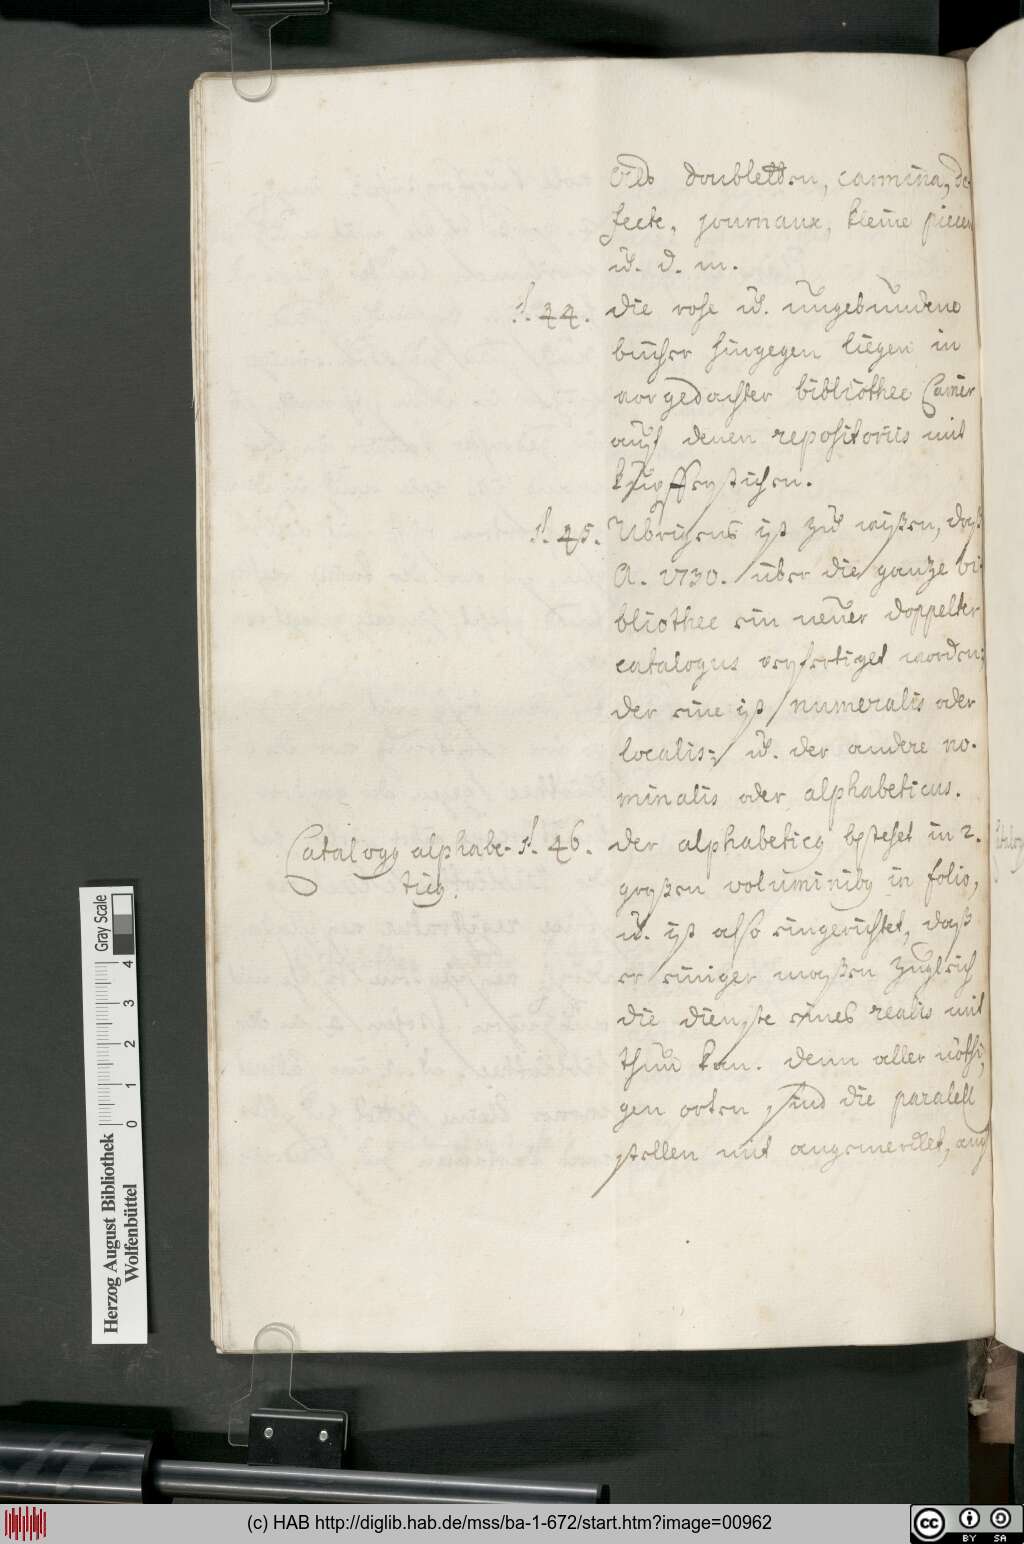 als doubletten, carmina, de-
fecte, journaux, kleine piecen
u. d. m.
§. 44. die rohe u. ungebundene
bücher hingegen liegen in
vorgedachter bibliothec Camer
auff denen repositoriis mit
Kupfferstichen.
§. 45. Übrigens ist zu wißen, daß
A. 1730. über die gantze bi-
bliothec ein neuer doppelter
catalogus verfertiget worden;
der eine ist numeralis oder
localis; u. der andere no-
minalis oder alphabeticus.
Catalogg alphabe- §. 46. der alphabeticg bestehet in 2.
ticg.
großen voluminibg in folio,
u. ist also eingerichtet, daß
er einiger maßen zugleich
die dienste eines realis mit
thun kan. denn aller nöthi-
gen orten sind die paralell
stellen mit angemercket, auch
Gray Scale
4
3
2
1
0
Herzog August Bibliothek
Wolfenbüttel
(c) HAB http://diglib.hab.de/mss/ba-1-672/start.htm?image=00962
cc
BY SA